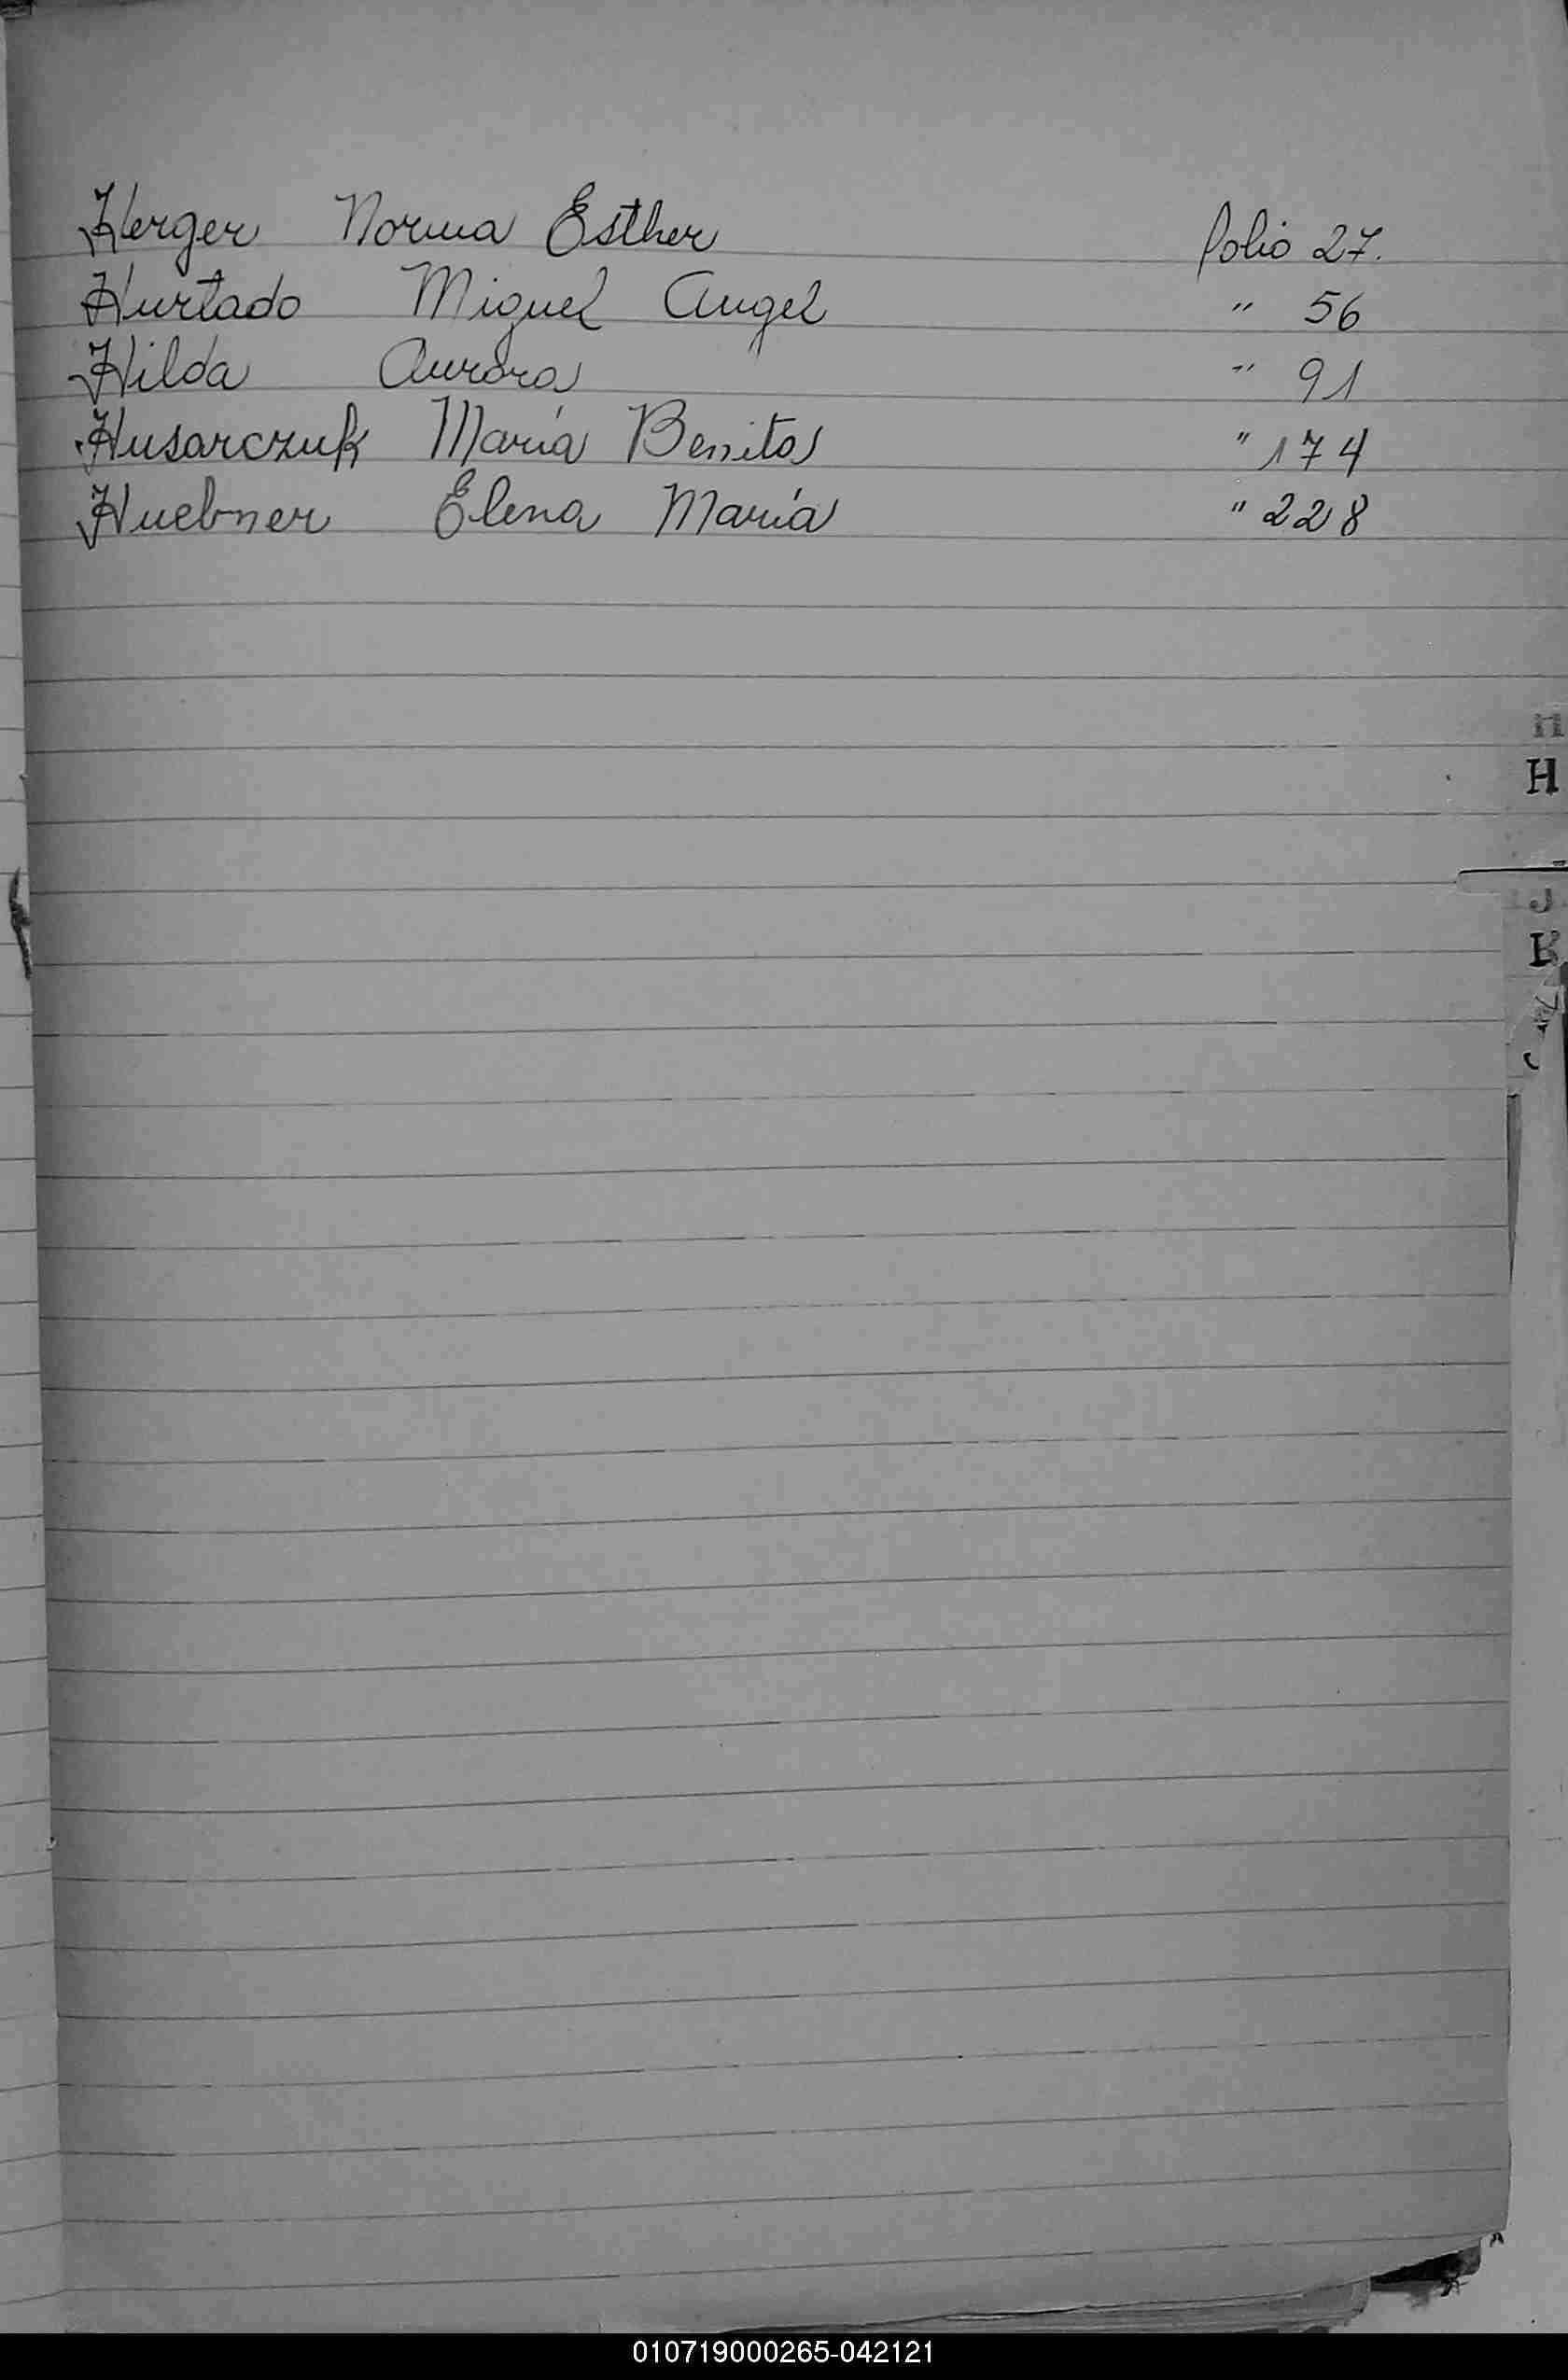 Herger Norma Esther folio 27.
Hurtado Miguel Angel " 56
Hilda Aurora " 91
Husarczuk María Benita " 174
Huebner Elena María " 228
H
J
K
010719000265-042121